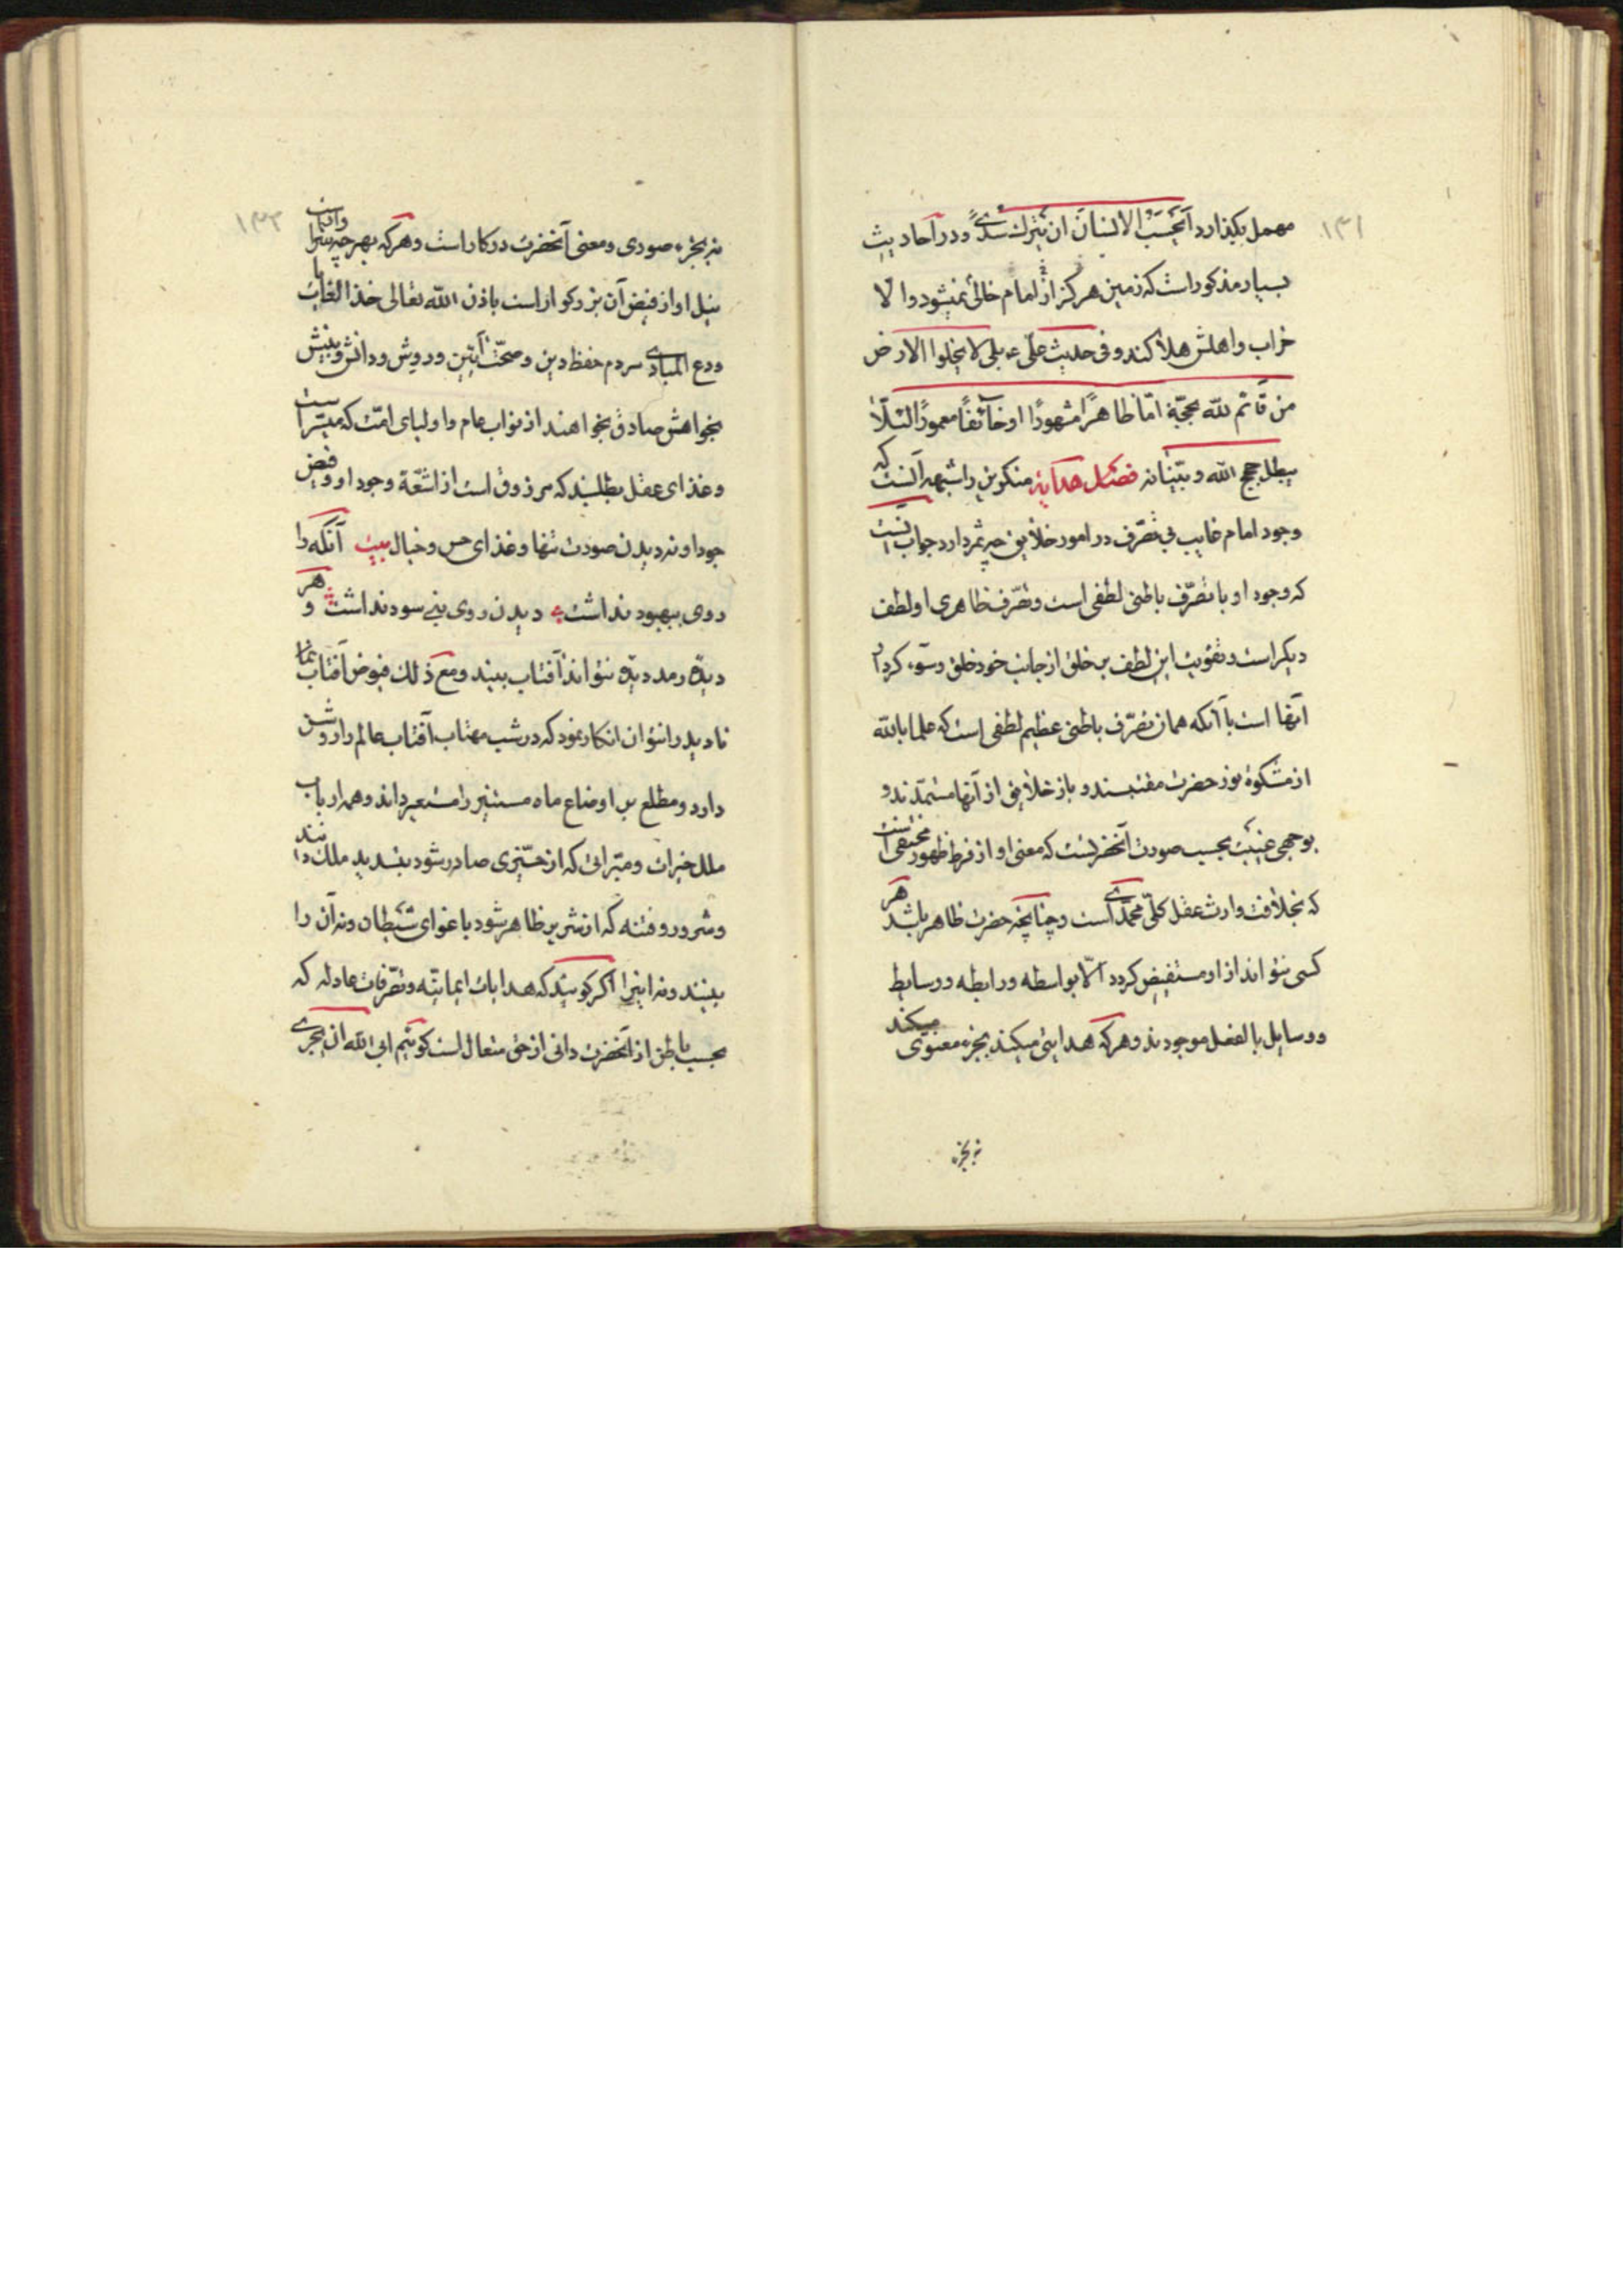 ۱۳۱
مهمل بگذارد اَیَحْسَبُ الاِنسانَ ان یُترَکَ سُدیً و در احادیث
بسیار مذکور است که زمین هرگز از امام خالی نمیشود والا
خراب و اهلش هلاک کند و فی حدیث علی ع بلی لا یخلوا الارض
من قائم لله بحجّة امّا ظاهرًا مشهودًا او خائفًا معمورًا لئلّا
یبطل حجج الله و بیّناته فصل هدایة منکرین را شبهه آنست که
وجود امام غایب بی تصرّف در امور خلایق چه ثمر دارد جواب اینست
که وجود او با تصرّف باطنی لطفی است و تصرّف ظاهری او لطف
دیگر است و تفویت این لطف بر خلق از جانب خود خلق و سوء کردار
آنها است با آنکه همان تصرّف باطنی عظیم لطفی است که علما بالله
از مشکوة نور حضرت مقتبسند و باز خلایق از آنها مستمدّند و
بوجهی غیبت بحسب صورت آنحضرتست که معنی او از فرط ظهور مختفی است
که بخلافت وارث عقل کلّی محمّدی است و چنانچه حضرت ظاهر باشد هر
کسی نتواند از او مستفیض گردد الّا بواسطه و رابطه و وسایط
و وسایل بالفعل موجودند و هر که هدایتی میکند بجزء معنوی میکند
نه بجزء
۱۳۲
نه بجزء صوری و معنی آنحضرت در کار است و هر که بهر چه سزا وانست
نیل او از فیض آن بزرگوار است باذن الله تعالی خذ الغایات
ودع المبادی مردم حفظ دین و صحّت آیین و روش و دانش و بینش
بخواهش صادق بخواهند از نواب عام و اولیای امّت که میسّر است
و غذای عقل بطلبند که مرزوق است از اشعّة وجود او و فیض
جود او نه دیدن صورت تنها و غذای حس و خیال بیت آنکه را
روی ببهبود نداشت دیدن روی نبی سود نداشت و هر
دیدهٔ رمد دیدهٔ نتواند آفتاب بیند و مع ذلک فیوض آفتاب نما
نادید را نتوان انکار نمود که در شب مهتاب آفتاب عالم را روشن
دارد و مطلع بر اوضاع ماه مستنیر را مستعیر داند و همه ارباب
ملل خیرات و میرّاتی که از خیّری صادر شود بتسدید ملک دانند
و شرور و فتنه که از شریر ظاهر شود باغوای شیطان و نه آن را
بینند و نه اینرا اگر گویند که هدایات ایمانیّه و تصرّفات عادله که
بحسب باطن از آنحضرت دانی از حق متعال است گوئیم ابی الله ان یجری